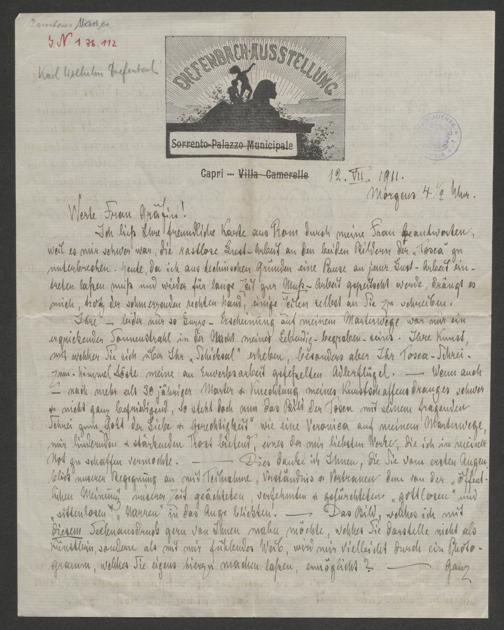 J N 138.112
Karl Wilhelm Diefenbach
DIEFENBACH-AUSSTELLUNG
Sorrento-Palazzo Municipale
Capri – Villa Camerelle 12. VII. 1911.
Morgens 4 ½ Uhr.
Werte Frau Gräfin!
Ich ließ Ihre freundliche Karte aus Rom durch meine Frau beantworten,
weil es mir schwer war, die rastlose Lust-Arbeit an den beiden Bildern der "Tosca" zu
unterbrechen. Heute, da ich aus technischen Gründen eine Pause an jener Lust-Arbeit ein-
treten lassen muß und wieder für lange Zeit zur Muß-Arbeit gepeitscht werde, drängt es
mich, trotz der schmerzenden rechten Hand, einige Zeilen selbst an Sie zu schreiben.
Ihre – leider nur so kurze – Erscheinung auf meinem Marterwege war mir ein
erquickender Sonnenstrahl in der Nacht meines Lebendig-begraben-seins. Ihre Kunst,
mit welcher Sie sich über Ihr "Schicksal" erheben, besonders aber Ihr Tosca-Schrei
zum Himmel löste meine an Erwerbsarbeit gefesselten Adlerflügel. – Wenn auch
– nach mehr als 30 jähriger Marter & Knechtung meines Kunstschaffensdranges schwer
& nicht ganz befriedigend, so steht doch nun das Bild der Tosca mit seinem fragenden
Schrei zum "Gott der Liebe & Gerechtigkeit" wie eine Veronica auf meinem Marterwege,
mir lindernden & stärkenden Trost bietend, eines der mir liebsten Werke, die ich in meiner
Not zu schaffen vermochte. – Dies danke ich Ihnen, die Sie vom ersten Augen-
blick unserer Begegnung an mit Teilnahme, Verständnis & Vertrauen dem von der "öffent-
lichen Meinung" unserer Zeit geächteten verhöhnten & gefürchteten "gottlosen" und
"sittenlosen" "Narren" in das Auge blickten. – Das Bild, welches ich mit
diesem Seelenausdruck gern von Ihnen malen möchte, welches Sie darstelle nicht als
Künstlerin, sondern als mit mir fühlendes Weib, wird mir vielleicht durch ein Photo-
gramm, welches Sie eigens hierzu machen lassen, ermöglicht? – Ganz